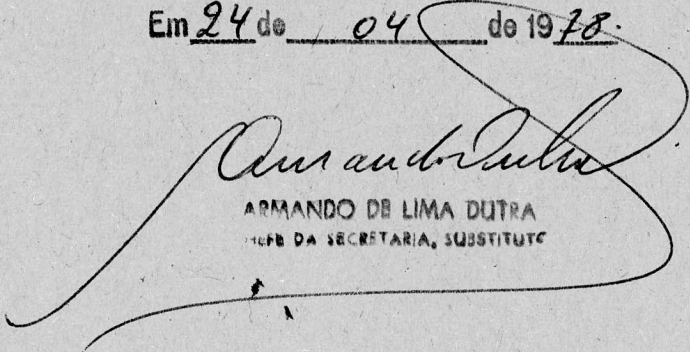 Em 24 de 04 de 1978.
Armando Dutra
ARMANDO DE LIMA DUTRA
CHEFE DA SECRETARIA, SUBSTITUTO